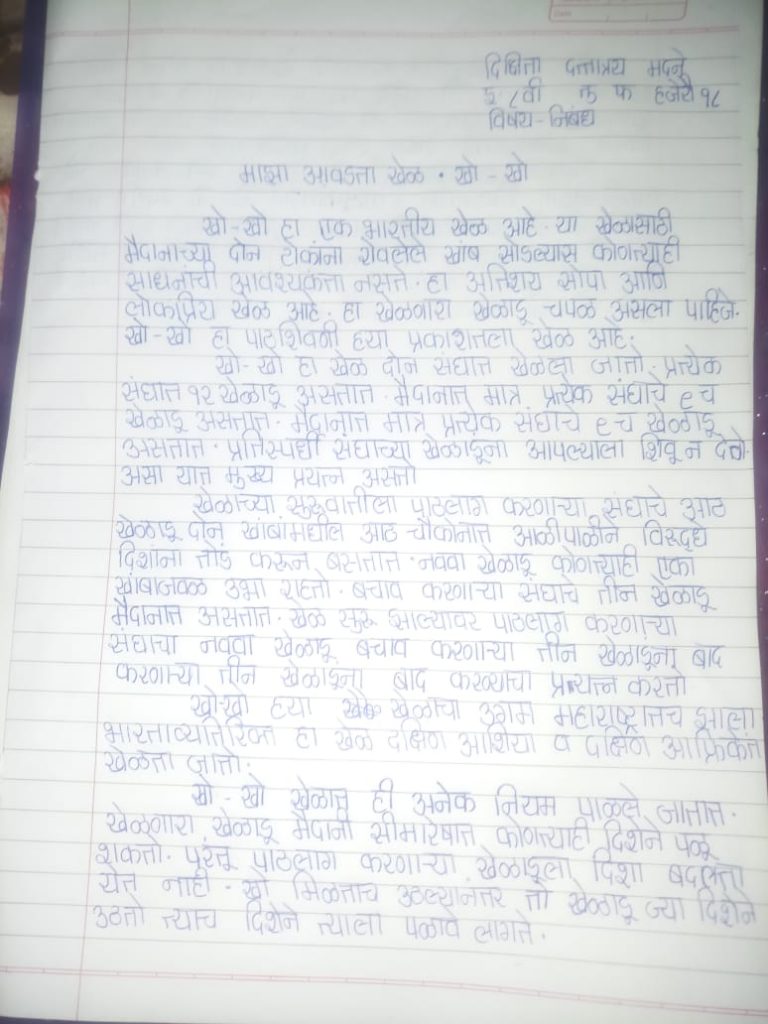 दिक्षिता दत्तात्रय मदने
इ ८वी तु फ हजेरी १८
विषय - निबंध
माझा आवडता खेळ · खो - खो
खो-खो हा एक भारतीय खेळ आहे. या खेळासाठी
मैदानाच्या दोन टोकांना रोवलेले खांब सोडल्यास कोणत्याही
साधनांची आवश्यकता नसते. हा अतिशय सोपा आणि
लोकप्रिय खेळ आहे. हा खेळणारा खेळाडू चपळ असला पाहिजे.
खो-खो हा पाठशिवणी हया प्रकाशतला खेळ आहे.
खो-खो हा खेळ दोन संघात खेळला जातो. प्रत्येक
संघात १२ खेळाडू असतात. मैदानात मात्र प्रत्येक संघाचे ९च
खेळाडू असतात. मैदानात मात्र प्रत्येक संघाचे ९च खेळाडू
असतात. प्रतिस्पर्धी संघाच्या खेळाडूंना आपल्याला शिवू न देतो.
असा यात मुख्य प्रयत्न असतो
खेळाच्या सुरुवातीला पाठलाग करणाऱ्या संघाचे आठ
खेळाडू दोन खांबांमधील आठ चौकोनात आळीपाळीने विरुद्धे
दिशांना तोंड करून बसतात. नववा खेळाडू कोणत्याही एका
खांबाजवळ उभा राहतो. बचाव करणाऱ्या संघाचे तीन खेळाडू
मैदानात असतात. खेळ सुरु झाल्यावर पाठलाग करणाऱ्या
संघाचा नववा खेळाडू बचाव करणाऱ्या तीन खेळाडूंना बाद
करणाऱ्या तीन खेळाडूंना बाद करण्याचा प्रत्यत्न करतो
खो-खो हया खेळाचा उगम महाराष्ट्रातच झाला
भारताव्यतिरिक्त हा खेळ दक्षिण आशिया व दक्षिण आफ्रिकेत
खेळला जातो.
खो - खो खेळात ही अनेक नियम पाळले जातात.
खेळणारा खेळाडू मैदानी सीमारेषात कोणत्याही दिशेने पळू
शकतो. परंतू पाठलाग करणाऱ्या खेळाडूला दिशा बदलता
येत नाही. खो मिळताच उठल्यानंतर तो खेळाडू ज्या दिशेने
उठतो त्याच दिशेने त्याला पळावे लागते.